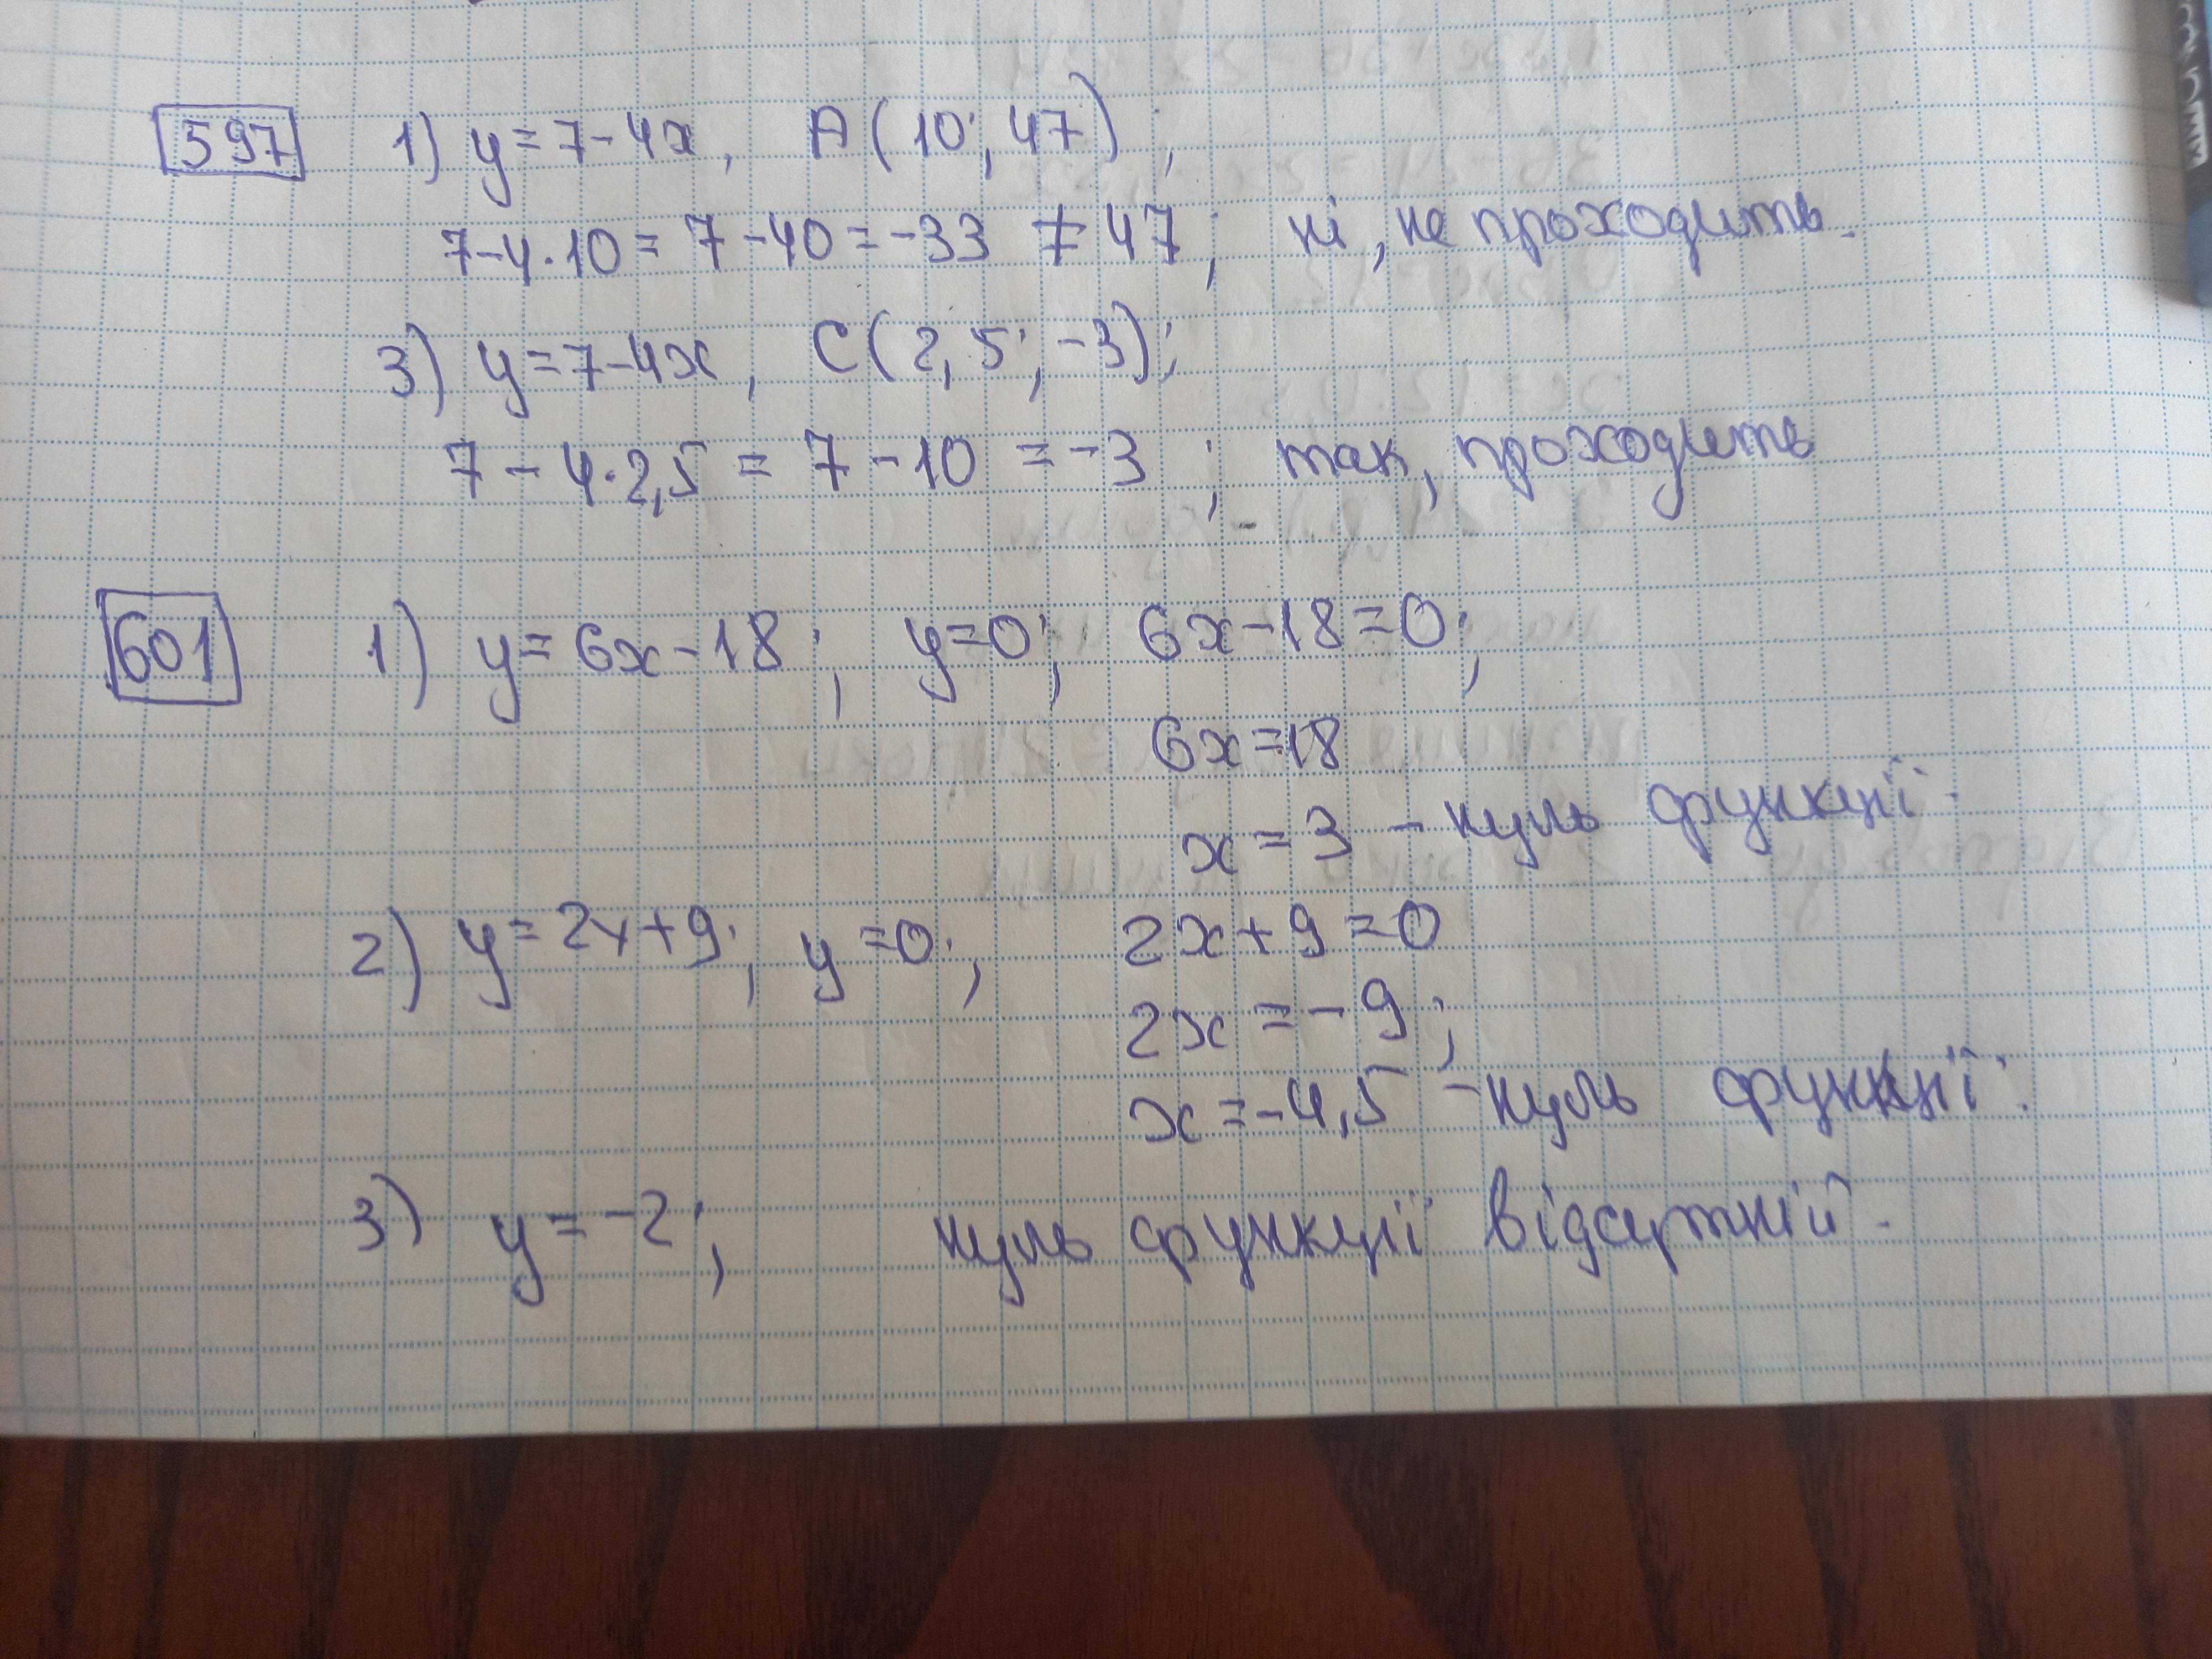 597 1) y=7-4x, A(10; 47);
7-4·10=7-40=-33 ≠ 47; ні, не проходить.
3) y=7-4x, C(2,5; -3);
7-4·2,5=7-10=-3; так, проходить
601 1) y=6x-18; y=0; 6x-18=0;
6x=18
x=3 - нуль функції.
2) y=2x+9; y=0; 2x+9=0
2x=-9;
x=-4,5 - нуль функції.
3) y=-2; нуль функції відсутній.